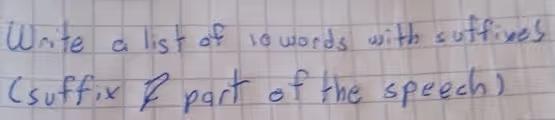 Write a list of 10 words with suffixes
(suffix & part of the speech)